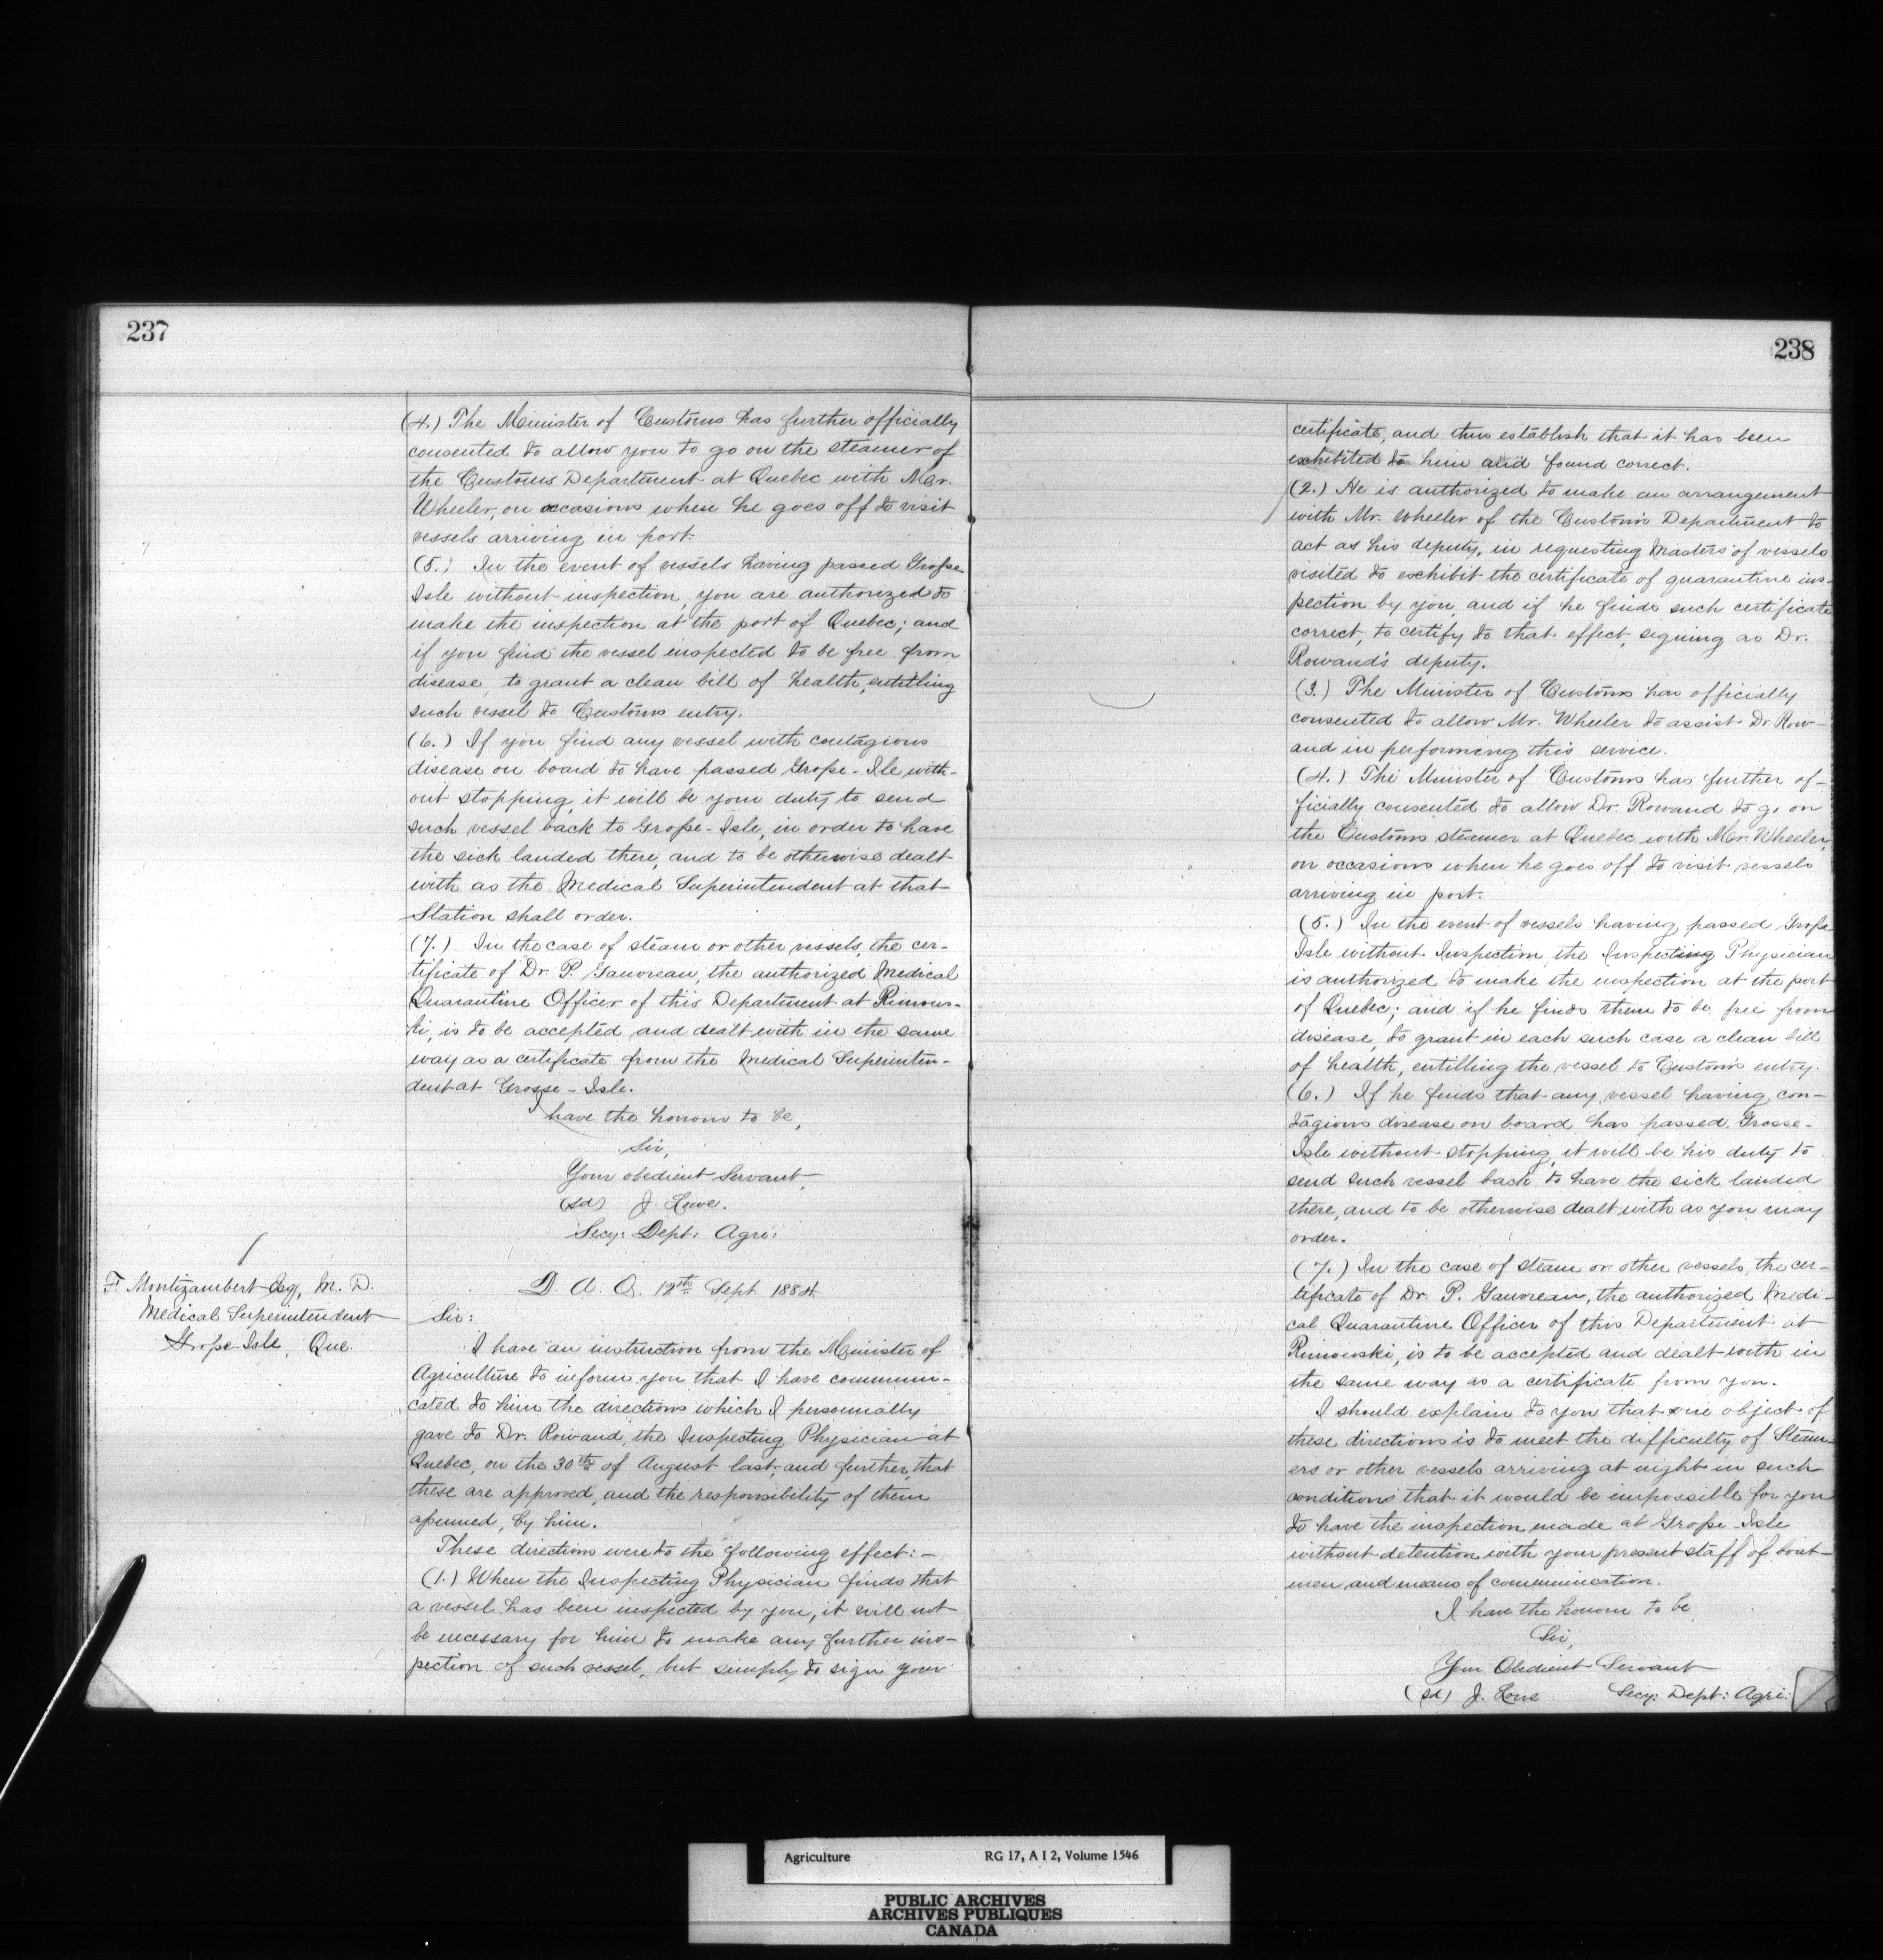 237
(4.) The Minister of Customs has further officially
consented to allow you to go on the steamer of
the Customs Department at Quebec with Mr.
Wheeler, on occasions when he goes off to visit
vessels arriving in port.
(5.) In the event of vessels having passed Grosse
Isle without inspection, you are authorized to
make the inspection at the port of Quebec; and
if you find the vessel inspected to be free from
disease, to grant a clean bill of health, entitling
such vessel to Customs entry.
(6.) If you find any vessel with contagious
disease on board to have passed Grosse-Ile with-
out stopping, it will be your duty to send
such vessel back to Grosse-Isle, in order to have
the sick landed there, and to be otherwise dealt
with as the Medical Superintendent at that
Station shall order.
(7.) In the case of steam or other vessels, the cer-
tificate of Dr P. Gauvreau, the authorized Medical
Quarantine Officer of this Department at Rimous-
ki, is to be accepted and dealt with in the same
way as a certificate from the Medical Superinten-
dent at Grosse-Isle.
I have the honour to be,
Sir,
Your obedient Servant,
(sd) J. Lowe.
Secy: Dept: Agri:
F. Montizambert Esq, M. D.
Medical Superintendent
Grosse Isle, Que.
D. A. O. 12th Sept 1884.
Sir:
I have an instruction from the Minister of
Agriculture to inform you that I have communi-
cated to him the directions which I personnally
gave to Dr. Rowand, the Inspecting Physician at
Quebec, on the 30th of August last, and further, that
these are approved, and the responsibility of them
assumed, by him.
These directions were to the following effect:-
(1.) When the Inspecting Physician finds that
a vessel has been inspected by you, it will not
be necessary for him to make any further ins-
pection of such vessel, but simply to sign your
238
certificate, and thus establish that it has been
exhibited to him and found correct.
(2.) He is authorized to make an arrangement
with Mr. Wheeler of the Customs Department to
act as his deputy, in requesting Masters of vessels
visited to exhibit the certificate of quarantine ins-
pection by you, and if he finds such certificate
correct, to certify to that effect, signing as Dr.
Rowand's deputy.
(3.) The Minister of Customs has officially
consented to allow Mr. Wheeler to assist Dr Row-
and in performing this service.
(4.) The Minister of Customs has further of-
ficially consented to allow Dr. Rowand to go on
the Customs steamer at Quebec with Mr. Wheeler,
on occasions when he goes off to visit vessels
arriving in port.
(5.) In the event of vessels having passed Grosse
Isle without Inspection, the Inspecting Physician
is authorized to make the inspection at the port
of Quebec; and if he finds them to be free from
disease, to grant in each such case a clean bill
of health, entitling the vessel to Customs entry.
(6.) If he finds that any vessel having con-
tagious disease on board has passed Grosse-
Isle without stopping, it will be his duty to
send such vessel back to have the sick landed
there, and to be otherwise dealt with as you may
order.
(7.) In the case of steam or other vessels, the cer-
tificate of Dr. P. Gauvreau, the authorized Medi-
cal Quarantine Officer of this Department at
Rimouski, is to be accepted and dealt with in
the same way as a certificate from you.
I should explain to you that one object of
these directions is to meet the difficulty of Steam-
ers or other vessels arriving at night in such
conditions that it would be impossible for you
to have the inspection made at Grosse-Isle
without detention with your present staff of boat-
men and means of communication.
I have the honour to be
Sir,
Your Obedient Servant
(sd) J. Lowe Secy: Dept: Agri:
Agriculture RG 17, A I 2, Volume 1546
PUBLIC ARCHIVES
ARCHIVES PUBLIQUES
CANADA